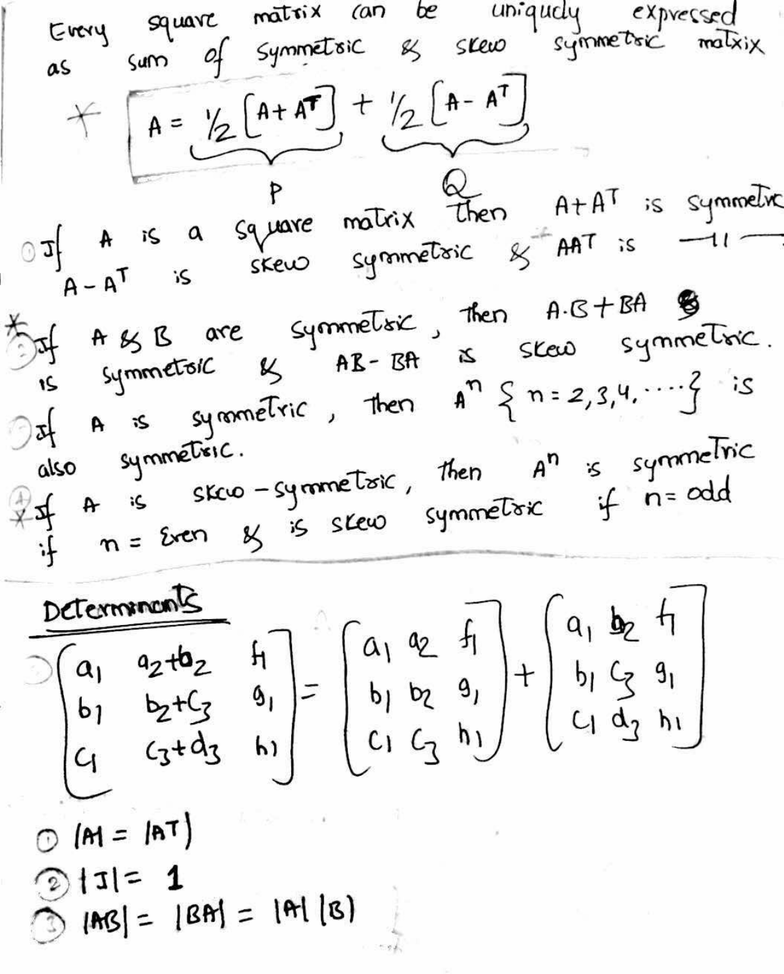 Every square matrix can be uniqudy expressed
as sum of symmetric & skew symmetric matxix
* A = 1/2 [A + A^T] + 1/2 [A - A^T]
P Q
① If A is a square matrix then A+A^T is symmetric
A - A^T is skew symmetric & AA^T is —11—
* ② If A & B are symmetric, then A.B + BA
is symmetric & AB - BA is skew symmetric.
③ If A is symmetric, then A^n { n = 2,3,4, ....} is
also symmetric.
* ④ If A is skew-symmetric, then A^n is symmetric
if n = Even & is skew symmetric if n = odd
Determinants
[a1 a2+b2 f1] = [a1 a2 f1] + [a1 b2 f1]
[b1 b2+c3 g1] [b1 b2 g1] [b1 c3 g1]
[c1 c3+d3 h1] [c1 c3 h1] [c1 d3 h1]
① |A| = |AT|
② |I| = 1
③ |AB| = |BA| = |A| |B|